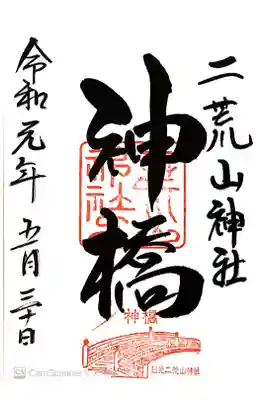 二荒山神社
神橋
令和元年 五月三十日
神橋
日光二荒山神社
CamScanner